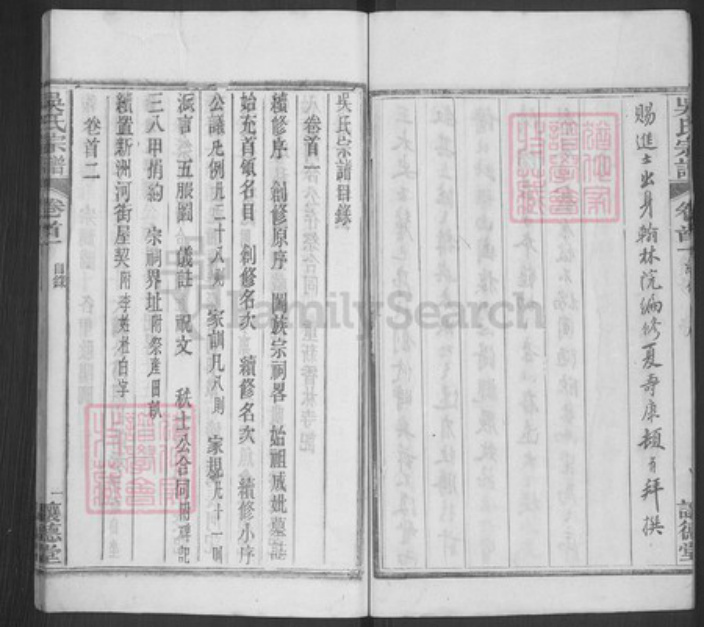 吳氏宗譜
讓德堂
賜進士出身翰林院編修夏壽康頓首拜撰
吳氏宗譜目錄
卷首一
續修序 創修原序 闔族宗祠畧 始祖成妣墓誌
始充首領名目 創修名次 續修名次 續修小序
公議凡例凡二十八則 家訓凡八則 家規凡十一則
派言 五服圖 儀註 祝文 秩士公合同附碑記
三八甲捐約 宗祠界址附祭產田畝
續置新洲河街屋契附李美社白字
卷首二
吳氏宗譜
卷首一
目錄
一
讓德堂
FamilySearch